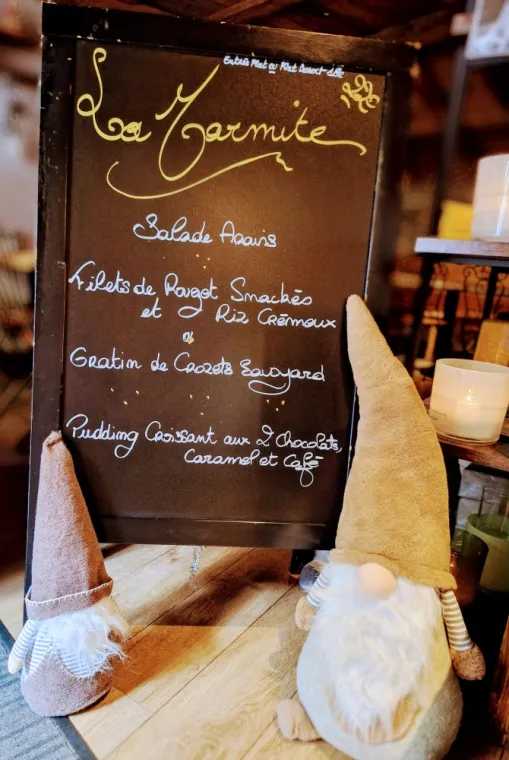 Entrée Plat ou Plat Dessert
La Marmite
Salade Aravis
Filets de Rouget Snackés
et Riz Crémeux
ou
Gratin de Crozets Savoyard
Pudding Croissant aux 2 Chocolats,
Caramel et Café